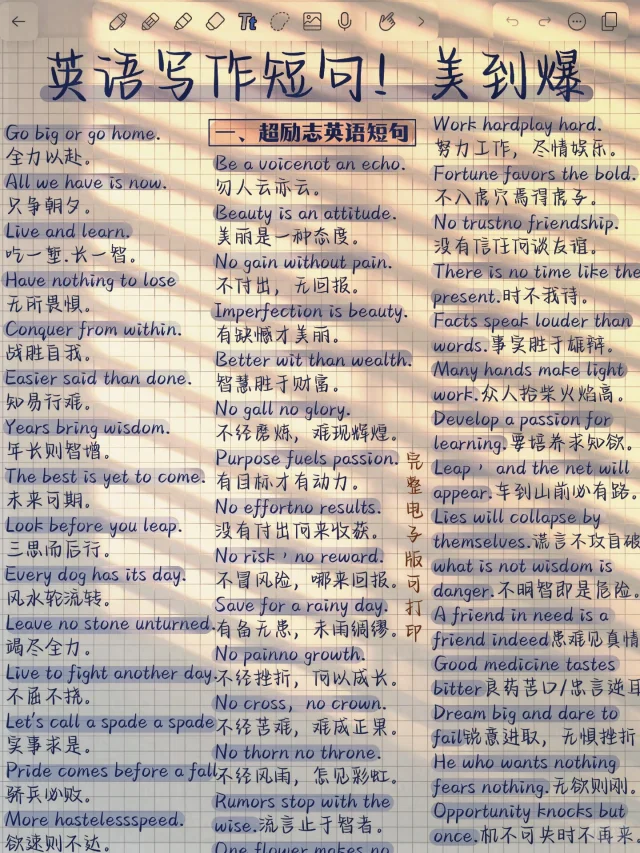 Tt
英语写作短句！ 美到爆
Go big or go home.
全力以赴。
All we have is now.
只争朝夕。
Live and learn.
吃一堑.长一智。
Have nothing to lose
无所畏惧。
Conquer from within.
战胜自我。
Easier said than done.
知易行难。
Years bring wisdom.
年长则智增。
The best is yet to come.
未来可期。
Look before you leap.
三思而后行。
Every dog has its day.
风水轮流转。
Leave no stone unturned.
竭尽全力。
Live to fight another day.
不屈不挠。
Let's call a spade a spade
实事求是。
Pride comes before a fall
骄兵必败。
More hastelessspeed.
欲速则不达。
一、超励志英语短句
Be a voicenot an echo.
勿人云亦云。
Beauty is an attitude.
美丽是一种态度。
No gain without pain.
不付出，无回报。
Imperfection is beauty.
有缺憾才美丽。
Better wit than wealth.
智慧胜于财富。
No gall no glory.
不经磨炼，难现辉煌。
Purpose fuels passion.
有目标才有动力。
No effortno results.
没有付出何来收获。
No risk，no reward.
不冒风险，哪来回报。
Save for a rainy day.
有备无患，未雨绸缪。
No painno growth.
不经挫折，何以成长。
No cross，no crown.
不经苦难，难成正果。
No thorn no throne.
不经风雨，怎见彩虹。
Rumors stop with the
wise.流言止于智者。
One flower makes no
完整电子版可打印
Work hardplay hard.
努力工作，尽情娱乐。
Fortune favors the bold.
不入虎穴焉得虎子。
No trustno friendship.
没有信任何谈友谊。
There is no time like the
present.时不我待。
Facts speak louder than
words.事实胜于雄辩。
Many hands make light
work.众人拾柴火焰高。
Develop a passion for
learning.要培养求知欲。
Leap，and the net will
appear.车到山前必有路。
Lies will collapse by
themselves.谎言不攻自破
what is not wisdom is
danger.不明智即是危险。
A friend in need is a
friend indeed患难见真情
Good medicine tastes
bitter良药苦口/忠言逆耳
Dream big and dare to
fail锐意进取，无惧挫折
He who wants nothing
fears nothing.无欲则刚。
Opportunity knocks but
once.机不可失时不再来.